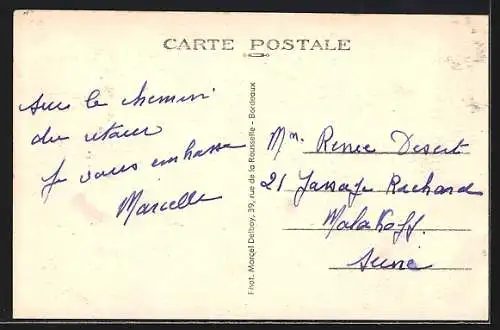 CARTE POSTALE
Sur le chemin
du retour
Je vous embrasse
Marcelle
Phot. Marcel Delboy, 39, rue de la Rousselle - Bordeaux
Renée
21 Passage Richard
Malakoff.
Seine